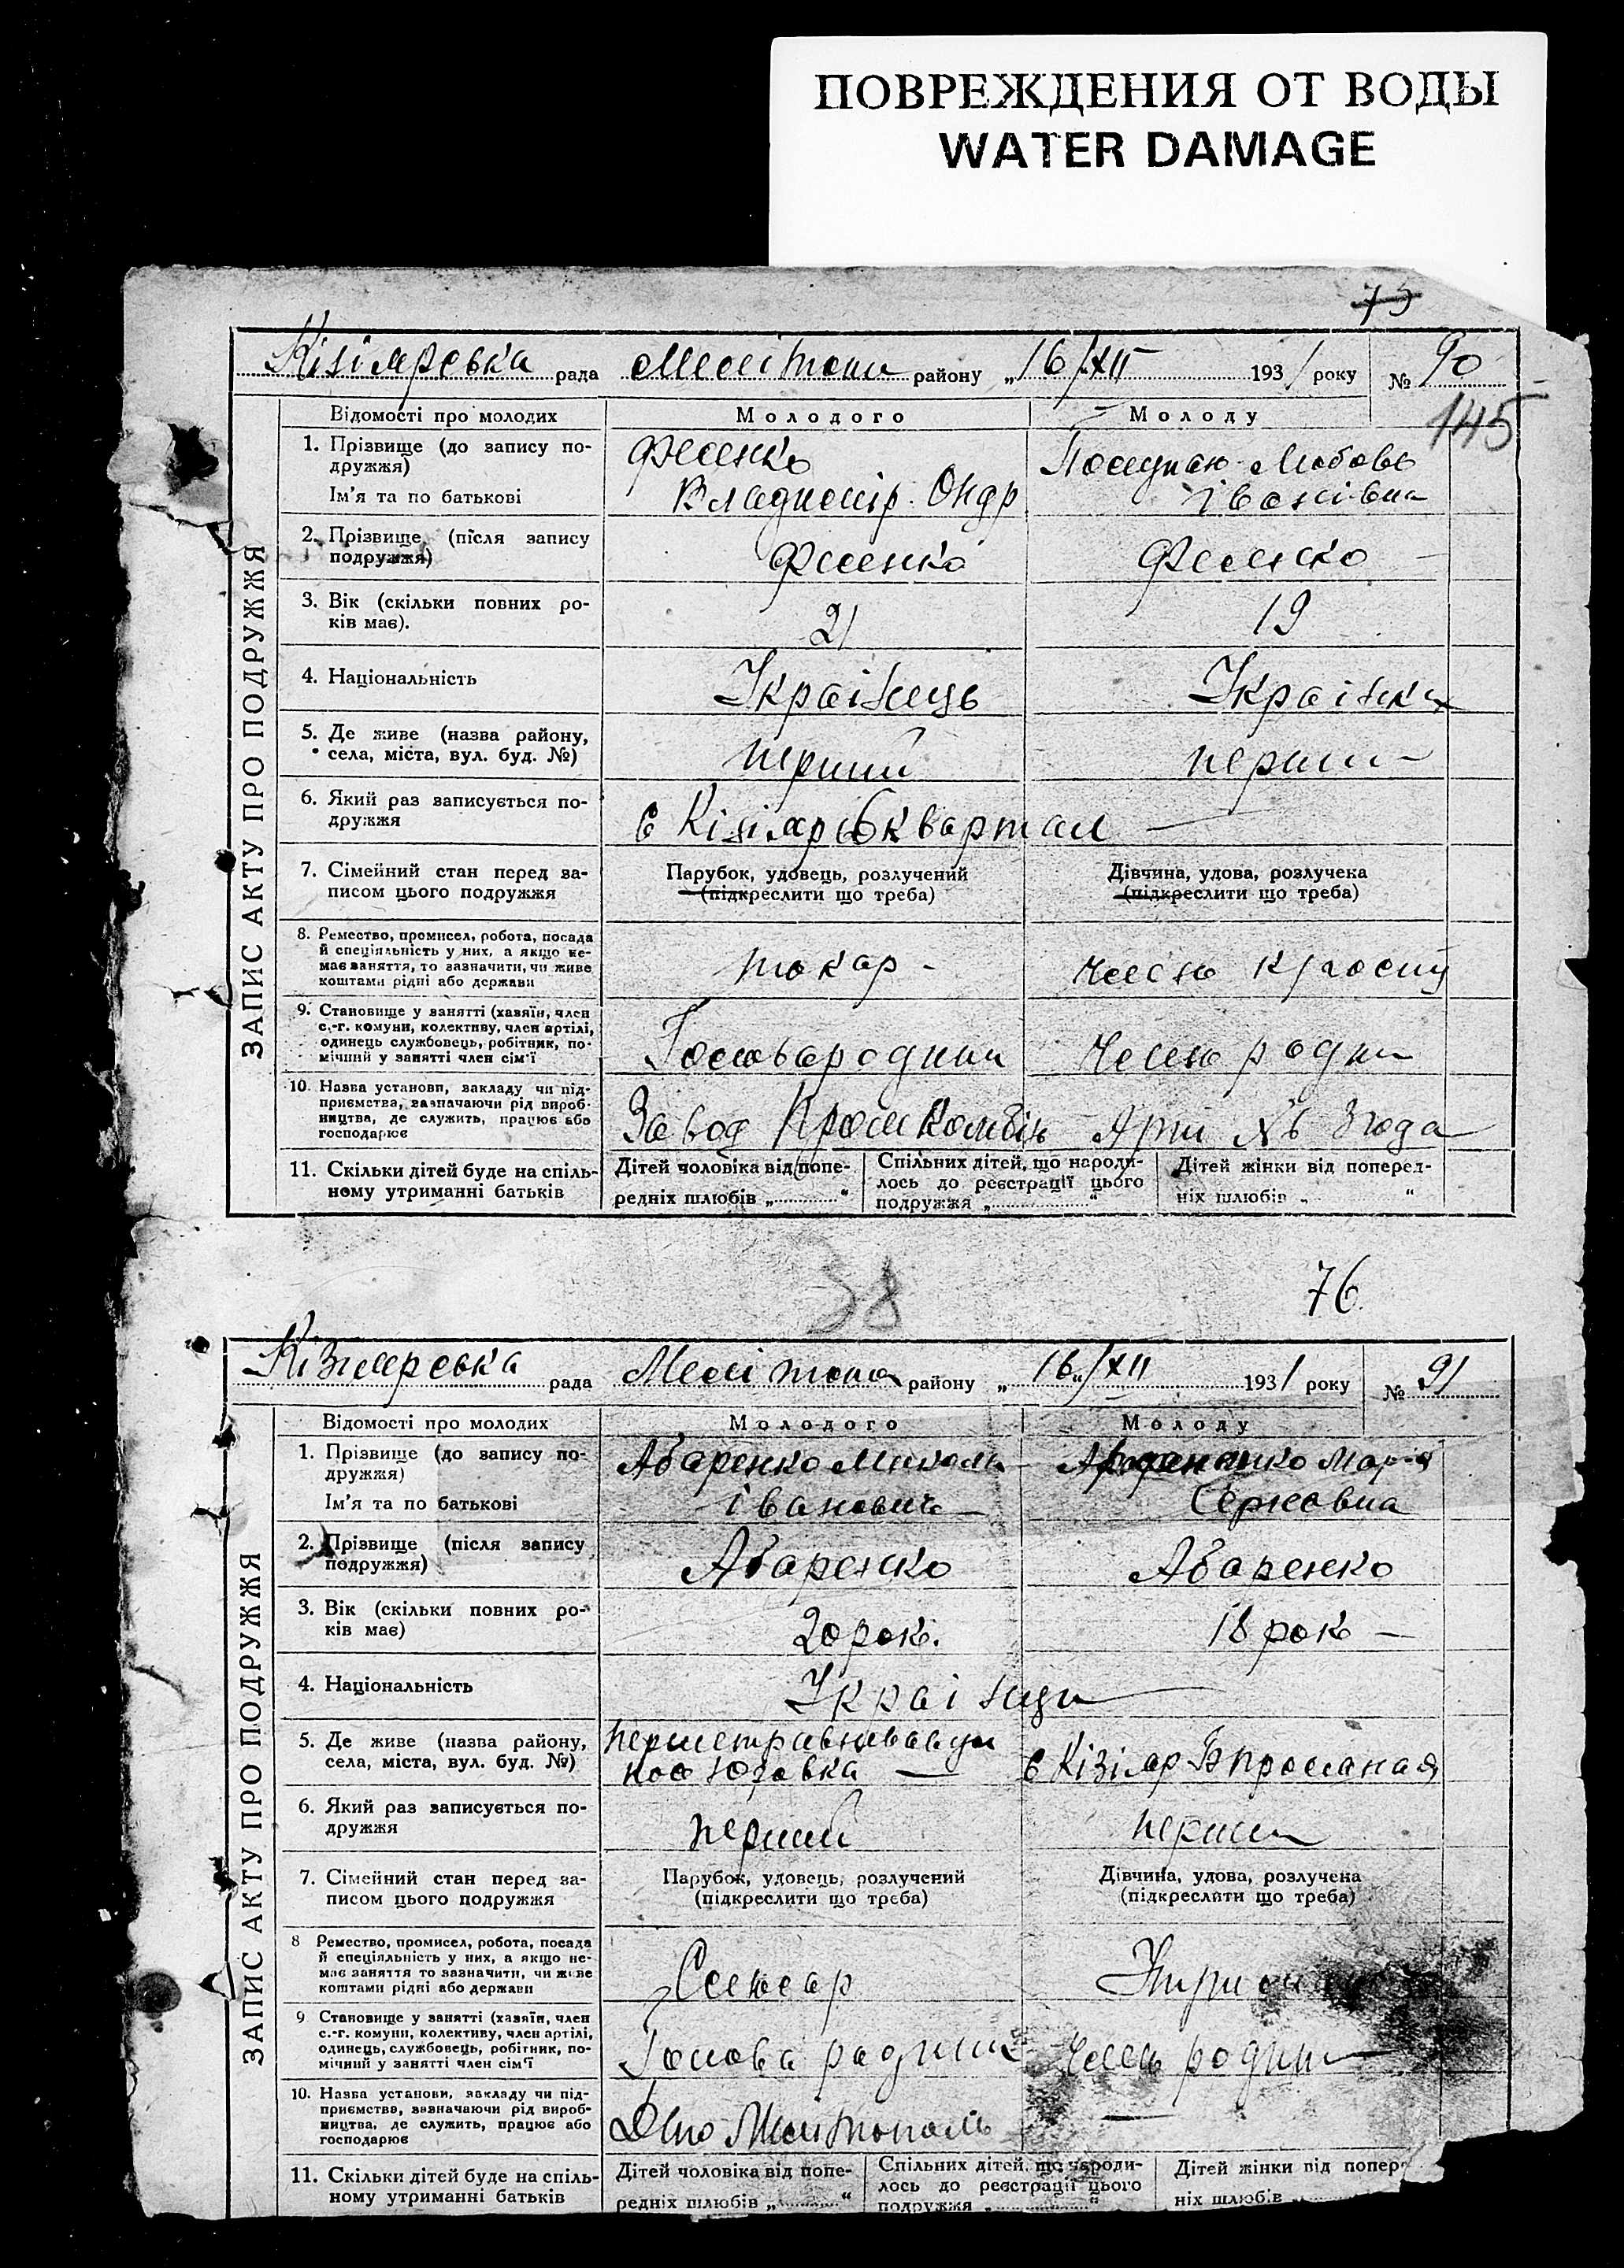 ПОВРЕЖДЕНИЯ ОТ ВОДЫ
WATER DAMAGE
75
Кізіярська рада Меліtопи району „16/XII 1931 року № 90
145
ЗАПИС АКТУ ПРО ПОДРУЖЖЯ
Відомості про молодих Молодого Молоду
1. Прізвище (до запису по-
дружжя)
Ім'я та по батькові
Фесенко
Владимір Ондр
Любовь
Івановна
2. Прізвище (після запису
подружжя)
Фесенко Фесенко
3. Вік (скільки повних ро-
ків має).
21 19
4. Національність Українець Українка
5. Де живе (назва району,
села, міста, вул. буд. №)
перший перший
6. Який раз записується по-
дружжя
с Кізіярь 6 квартал
7. Сімейний стан перед за-
писом цього подружжя
Парубок, удовець, розлучений
(підкреслити що треба)
Дівчина, удова, розлучека
(підкреслити що треба)
8. Ремество, промисел, робота, посада
й спеціяльність у них, а якщо не-
має заняття, то зазначити, чи живе
коштами рідні або держави
токар член
9. Становище у занятті (хазяїн, член
с.-г. комуни, колективу, член артілі,
одинець службовець, робітник, по-
мічний у занятті член сім'ї
Голова родини Член родини
10. Назва установи, закладу чи під-
приємства, зазначаючи рід вироб-
ництва, де служить, працює або
господарює
Завод Промкомбін Арті Згода
11. Скільки дітей буде на спіль-
ному утриманні батьків
Дітей чоловіка від попе-
редніх шлюбів „ “
Спільних дітей, що народи-
лось до реєстрації цього
подружжя „ “
Дітей жінки від поперед-
ніх шлюбів „ “
38
76
Кізиярська рада Меліtопа району „16/XII 1931 року № 91
ЗАПИС АКТУ ПРО ПОДРУЖЖЯ
Відомості про молодих Молодого Молоду
1. Прізвище (до запису по-
дружжя)
Ім'я та по батькові
Абаренко Микола
Іванович
Марія
Сергеевна
2. Прізвище (після запису
подружжя)
Абаренко Абаренко
3. Вік (скільки повних ро-
ків має)
20 рок. 18 рок
4. Національність Українци
5. Де живе (назва району,
села, міста, вул. буд. №)
с Кізіяр
6. Який раз записується по-
дружжя
перший перший
7. Сімейний стан перед за-
писом цього подружжя
Парубок, удовець, розлучений
(підкреслити що треба)
Дівчина, удова, розлучена
(підкреслити що треба)
8 Ремество, промисел, робота, посада
й спеціяльність у них, а якщо не-
має заняття то зазначити, чи живе
коштами рідні або держави
Слюсар
9 Становище у занятті (хазяїн, член
с.-г. комуни, колективу, член артілі,
одинець, службовець, робітник, по-
мічний у занятті член сім'ї
Голова родини Член родини
10. Назва установи, закладу чи під-
приємства, зазначаючи рід вироб-
ництва, де служить, працює або
господарює
Депо Мелитополь
11. Скільки дітей буде на спіль-
ному утриманні батьків
Дітей чоловіка від попе-
редніх шлюбів „ “
Спільних дітей, що народи-
лось до реєстрації цього
подружжя „ “
Дітей жінки від попер
ніх шлюбів